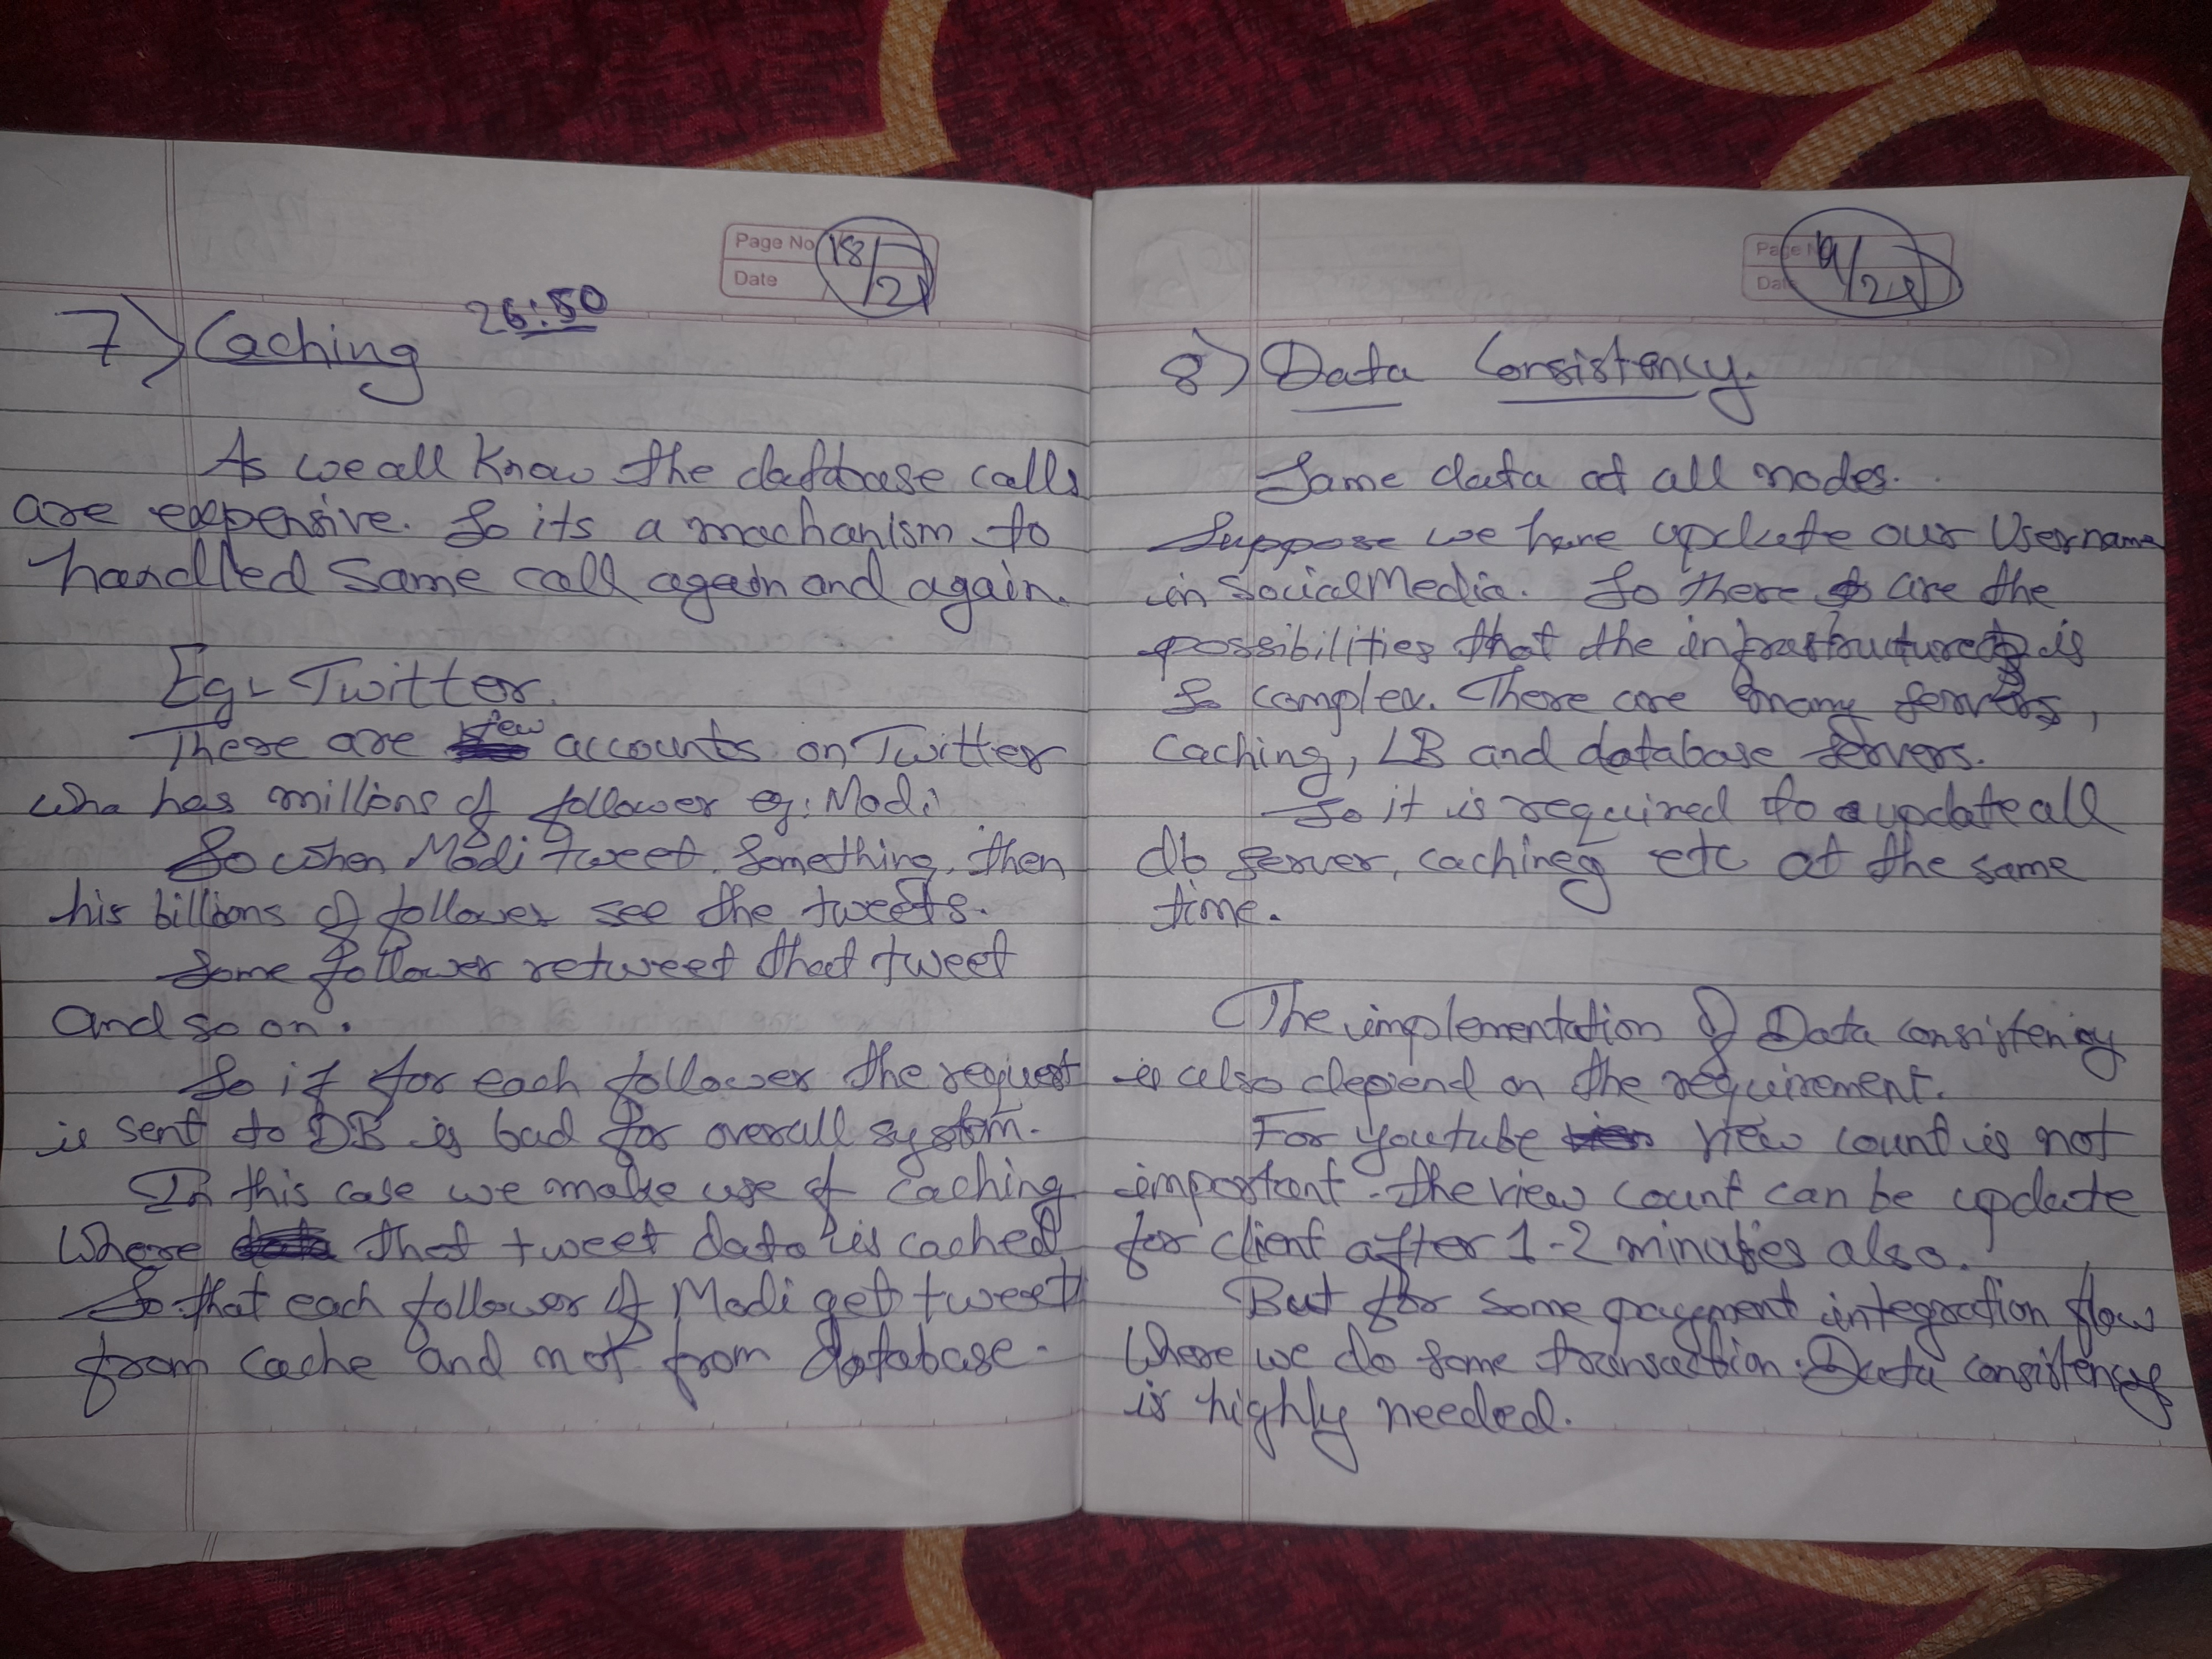 Page No. 18/21
Date
7) Caching 26:50
As we all know the database calls
are expensive. So its a machanism to
handlled same call again and again.
Eg:- Twitter.
These are few accounts on Twitter
who has millions of follower eg: Modi
So when Modi tweet something, then
his billions of follower see the tweets.
Some follower retweet that tweet
and so on.
So if for each follower the request
is sent to DB is bad for overall system.
In this case we make use of caching
where that tweet data is cached
So that each follower of Modi get tweet
from cache and not from database.
Page No. 19/21
Date
8) Data Consistency.
Same data at all nodes.
Suppose we have update our Username
in Social Media. So there are the
possibilities that the infrastructure is
so complex. There are many servers,
caching, LB and database servers.
So it is required to update all
db server, caching etc at the same
time.
The implementation of Data consistency
is also depend on the requirement.
For youtube view count is not
important. The view count can be update
for client after 1-2 minutes also.
But for some payment integration flow
where we do some transaction. Data consistency
is highly needed.